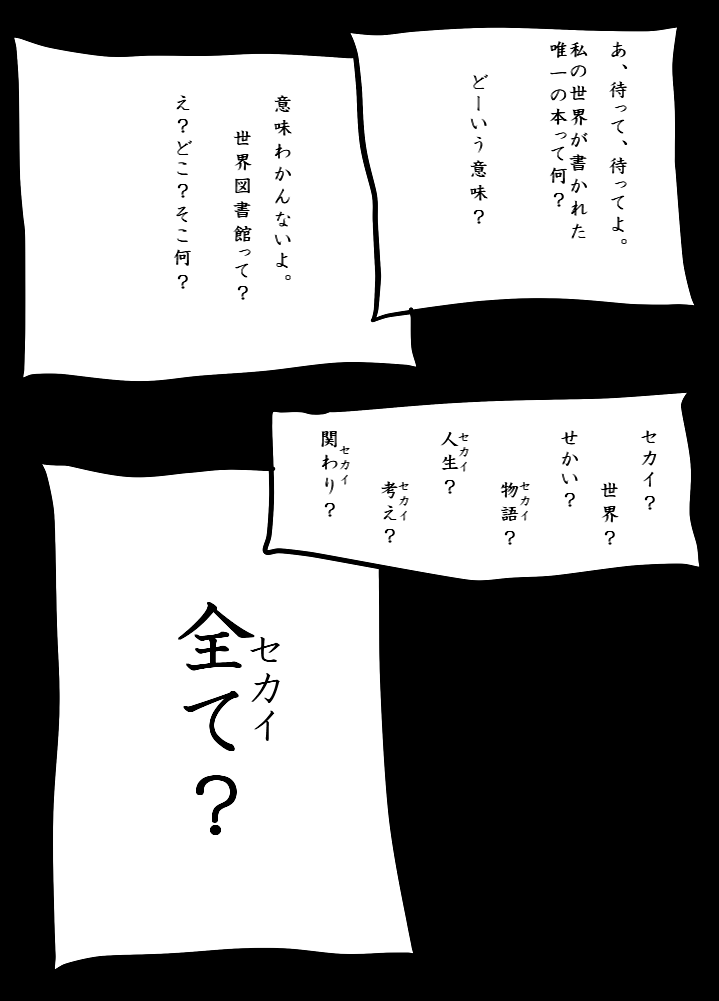 あ、待って、待ってよ。
私の世界が書かれた
唯一の本って何？
どーいう意味？
意味わかんないよ。
世界図書館って？
え？どこ？そこ何？
セカイ？
世界？
せかい？
物語？
セカイ
人生？
セカイ
考え？
セカイ
関わり？
セカイ
全て？
セカイ